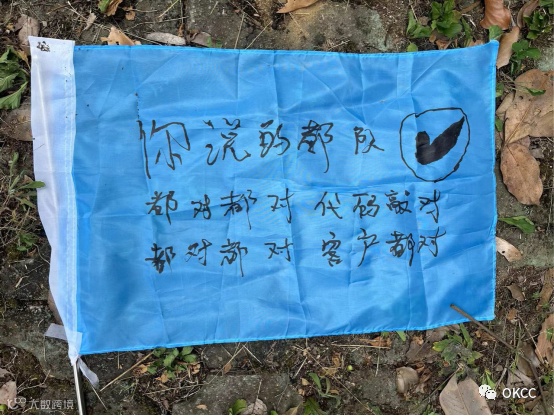 你说的都队
都对都对 代码敲对
都对都对 客户都对
大数跨境
OKCC